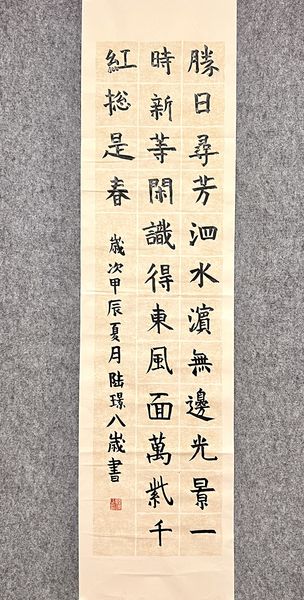 勝日尋芳泗水濵無邊光景一
時新等閑識得東風面萬紫千
紅捴是春
歲次甲辰夏月陸璟八歲書